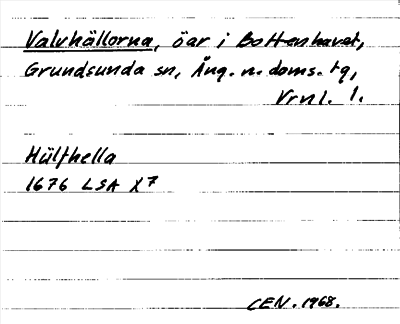 Valvhällorna, öar i Bottenhavet,
Grundsunda sn, Ång. n. doms. tg,
Vrnl. 1.
Hülfhella
1676 LSA X7
CEN. 1968.